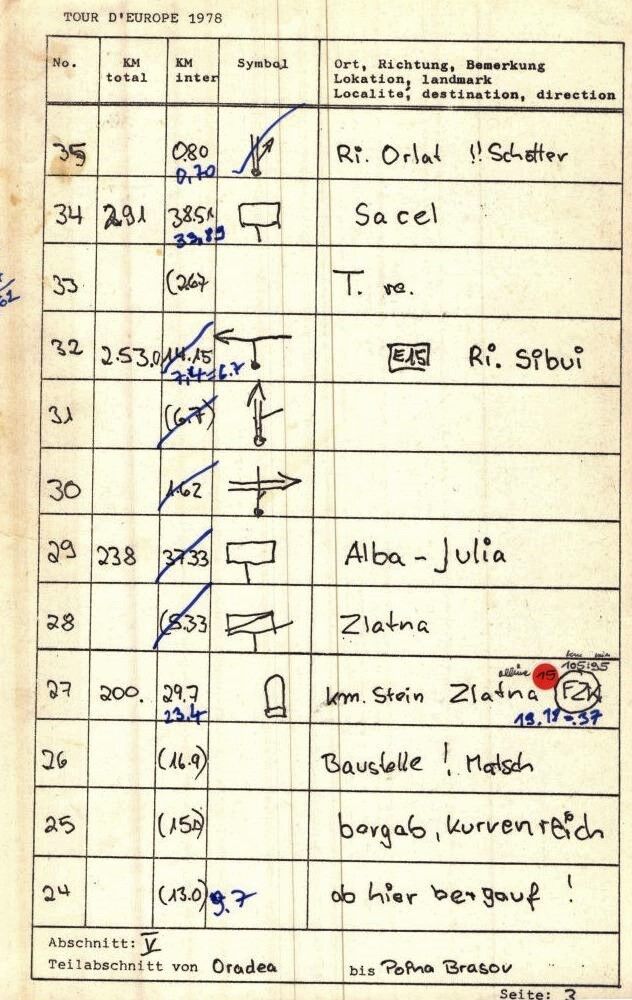 TOUR D'EUROPE 1978
No. KM total KM inter Symbol Ort, Richtung, Bemerkung
Lokation, landmark
Localité, destination, direction
35 0.80 Ri. Orlat !! Schotter
0,70
34 291 38.51 Sacel
33.89
33 (2.67 T. re.
32 253.0 14.15 E15 Ri. Sibui
7,4 = 6.7
31 (6.7)
30 1.62
29 238 37.33 Alba - Julia
28 (5.33 Zlatna
27 200. 29.7 km. Stein Zlatna 15 FZK
23.4
26 (16.9) Baustelle ! Matsch
25 bergab, kurvenreich
24 (13.0) 9.7 ab hier bergauf !
Abschnitt: V
Teilabschnitt von Oradea bis Brasov
Seite: 3